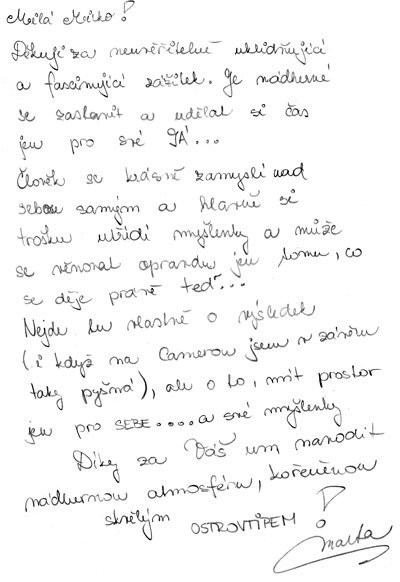 Milá Mirko!
Děkuji za neuvěřitelně uklidňující
a fascinující zážitek. Je nádherné
se zastavit a udělat si čas
jen pro své JÁ...
Člověk se krásně zamyslí nad
sebou samým a hlavně si
trošku utřídí myšlenky a může
se věnovat opravdu jen tomu, co
se děje právě teď...
Nejde tu vlastně o výsledek
(i když na Camerou jsem v závěru
taky pyšná), ale o to, mít prostor
jen pro SEBE....a své myšlenky
Díky za Váš um navodit
nádhernou atmosféru, kořeněnou
skvělým OSTROVTIPEM!
Marta